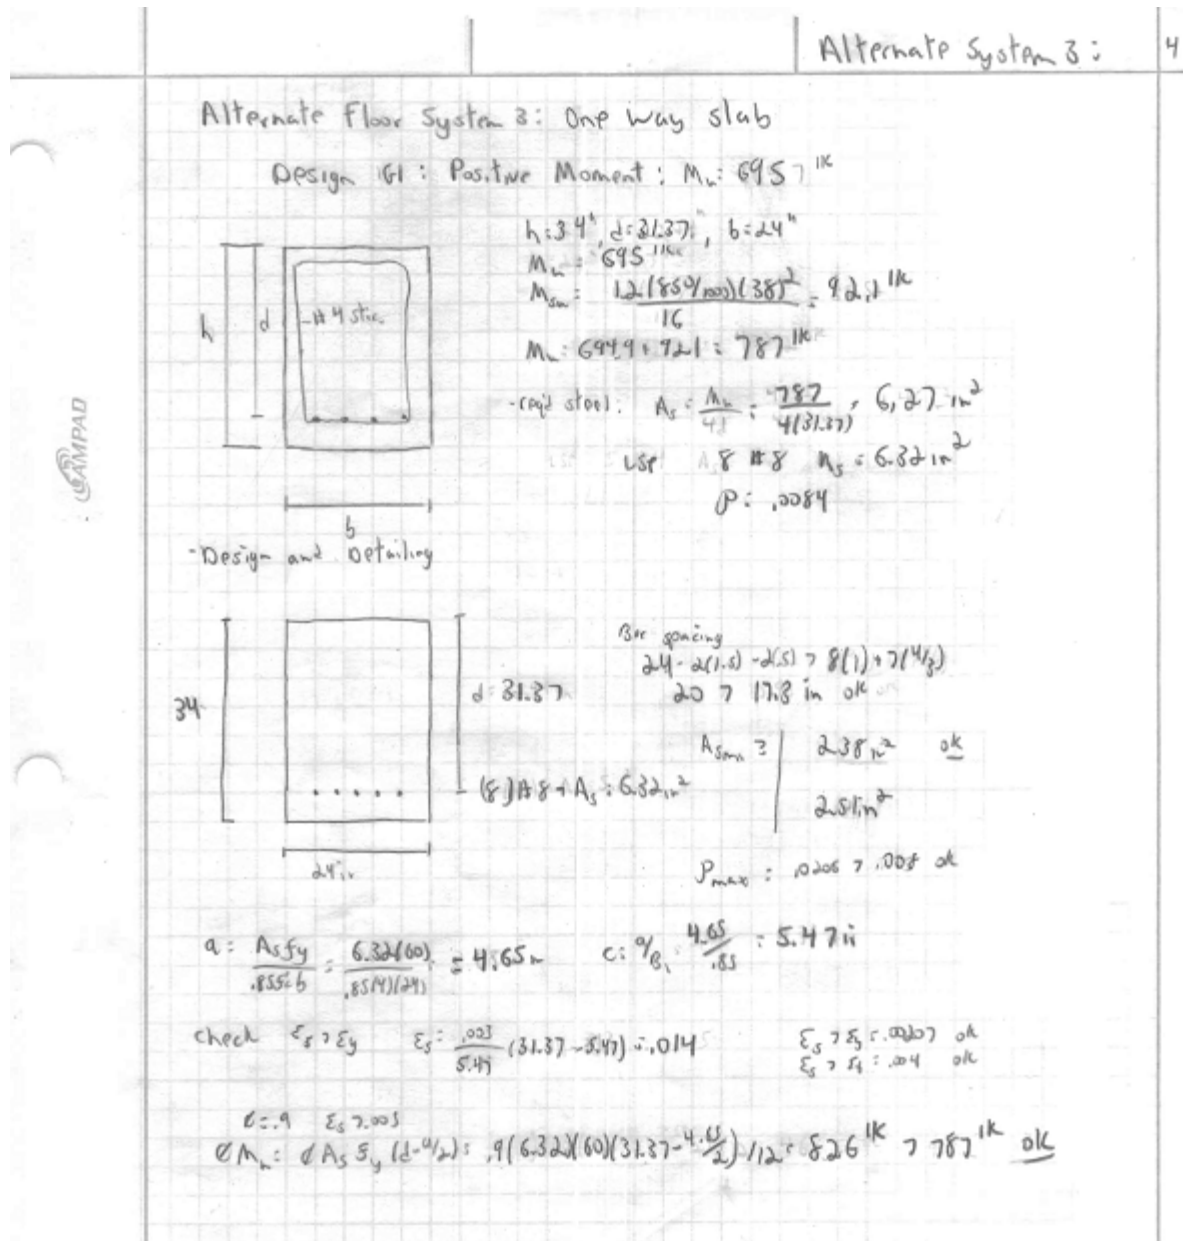 Alternate System 3: 4
Alternate Floor System 3: One way slab
Design G1: Positive Moment: Mu: 695 7 'k
h=34", d=31.37", b=24"
Mu = 695 'k
Msw = 1.2(850/1000)(38)² / 16 = 92.1 'k
Mu = 694.9 + 92.1 = 787 'k
h d #4 stir.
-req'd steel: As = Mu/4d = 787/4(31.37) = 6.27 in²
use 8 #8 As = 6.32 in²
ρ = .0084
b
-Design and Detailing
AMPAD
Bar spacing
24 - 2(1.5) - 2(.5) > 8(1) + 7(4/3)
20 > 17.3 in ok
34 d = 31.37
As min ≥ 2.38 in² ok
2.51 in²
(8) #8 → As = 6.32 in²
24 in
ρmax = .0206 > .008 ok
a = As fy / .85f'c b = 6.32(60) / .85(4)(24) = 4.65 in c = a/β1 = 4.65/.85 = 5.47 in
check εs > εy εs = .003/5.47 (31.37 - 5.47) = .014 εs > εy = .00207 ok
εs > εt = .004 ok
ϕ = .9 εs > .005
ϕMn = ϕ As fy (d - a/2) = .9(6.32)(60)(31.37 - 4.65/2)/12 = 826 'k > 787 'k ok